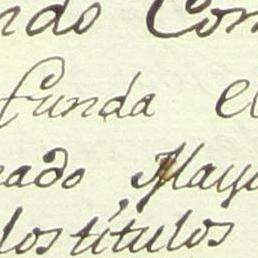 ndo Con
funda el
eado, May
los títulos